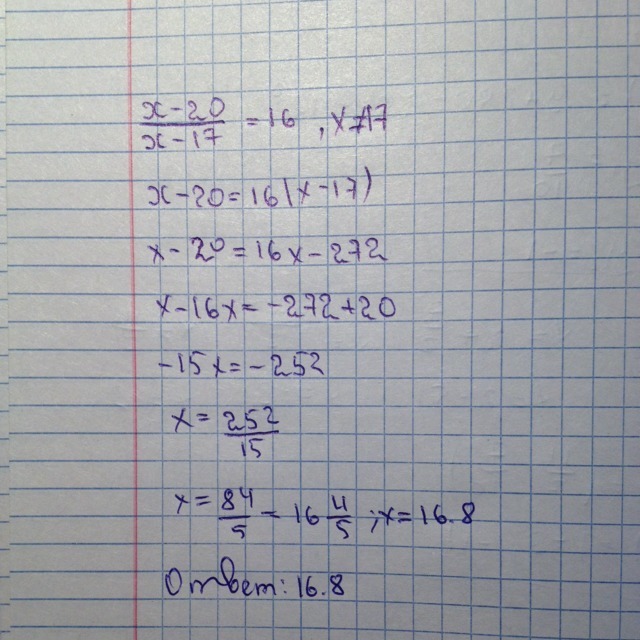 x-20/x-17 = 16 , x≠17
x-20=16(x-17)
x-20=16x-272
x-16x=-272+20
-15x=-252
x= 252/15
x= 84/5 = 16 4/5 ; x=16.8
Ответ: 16.8